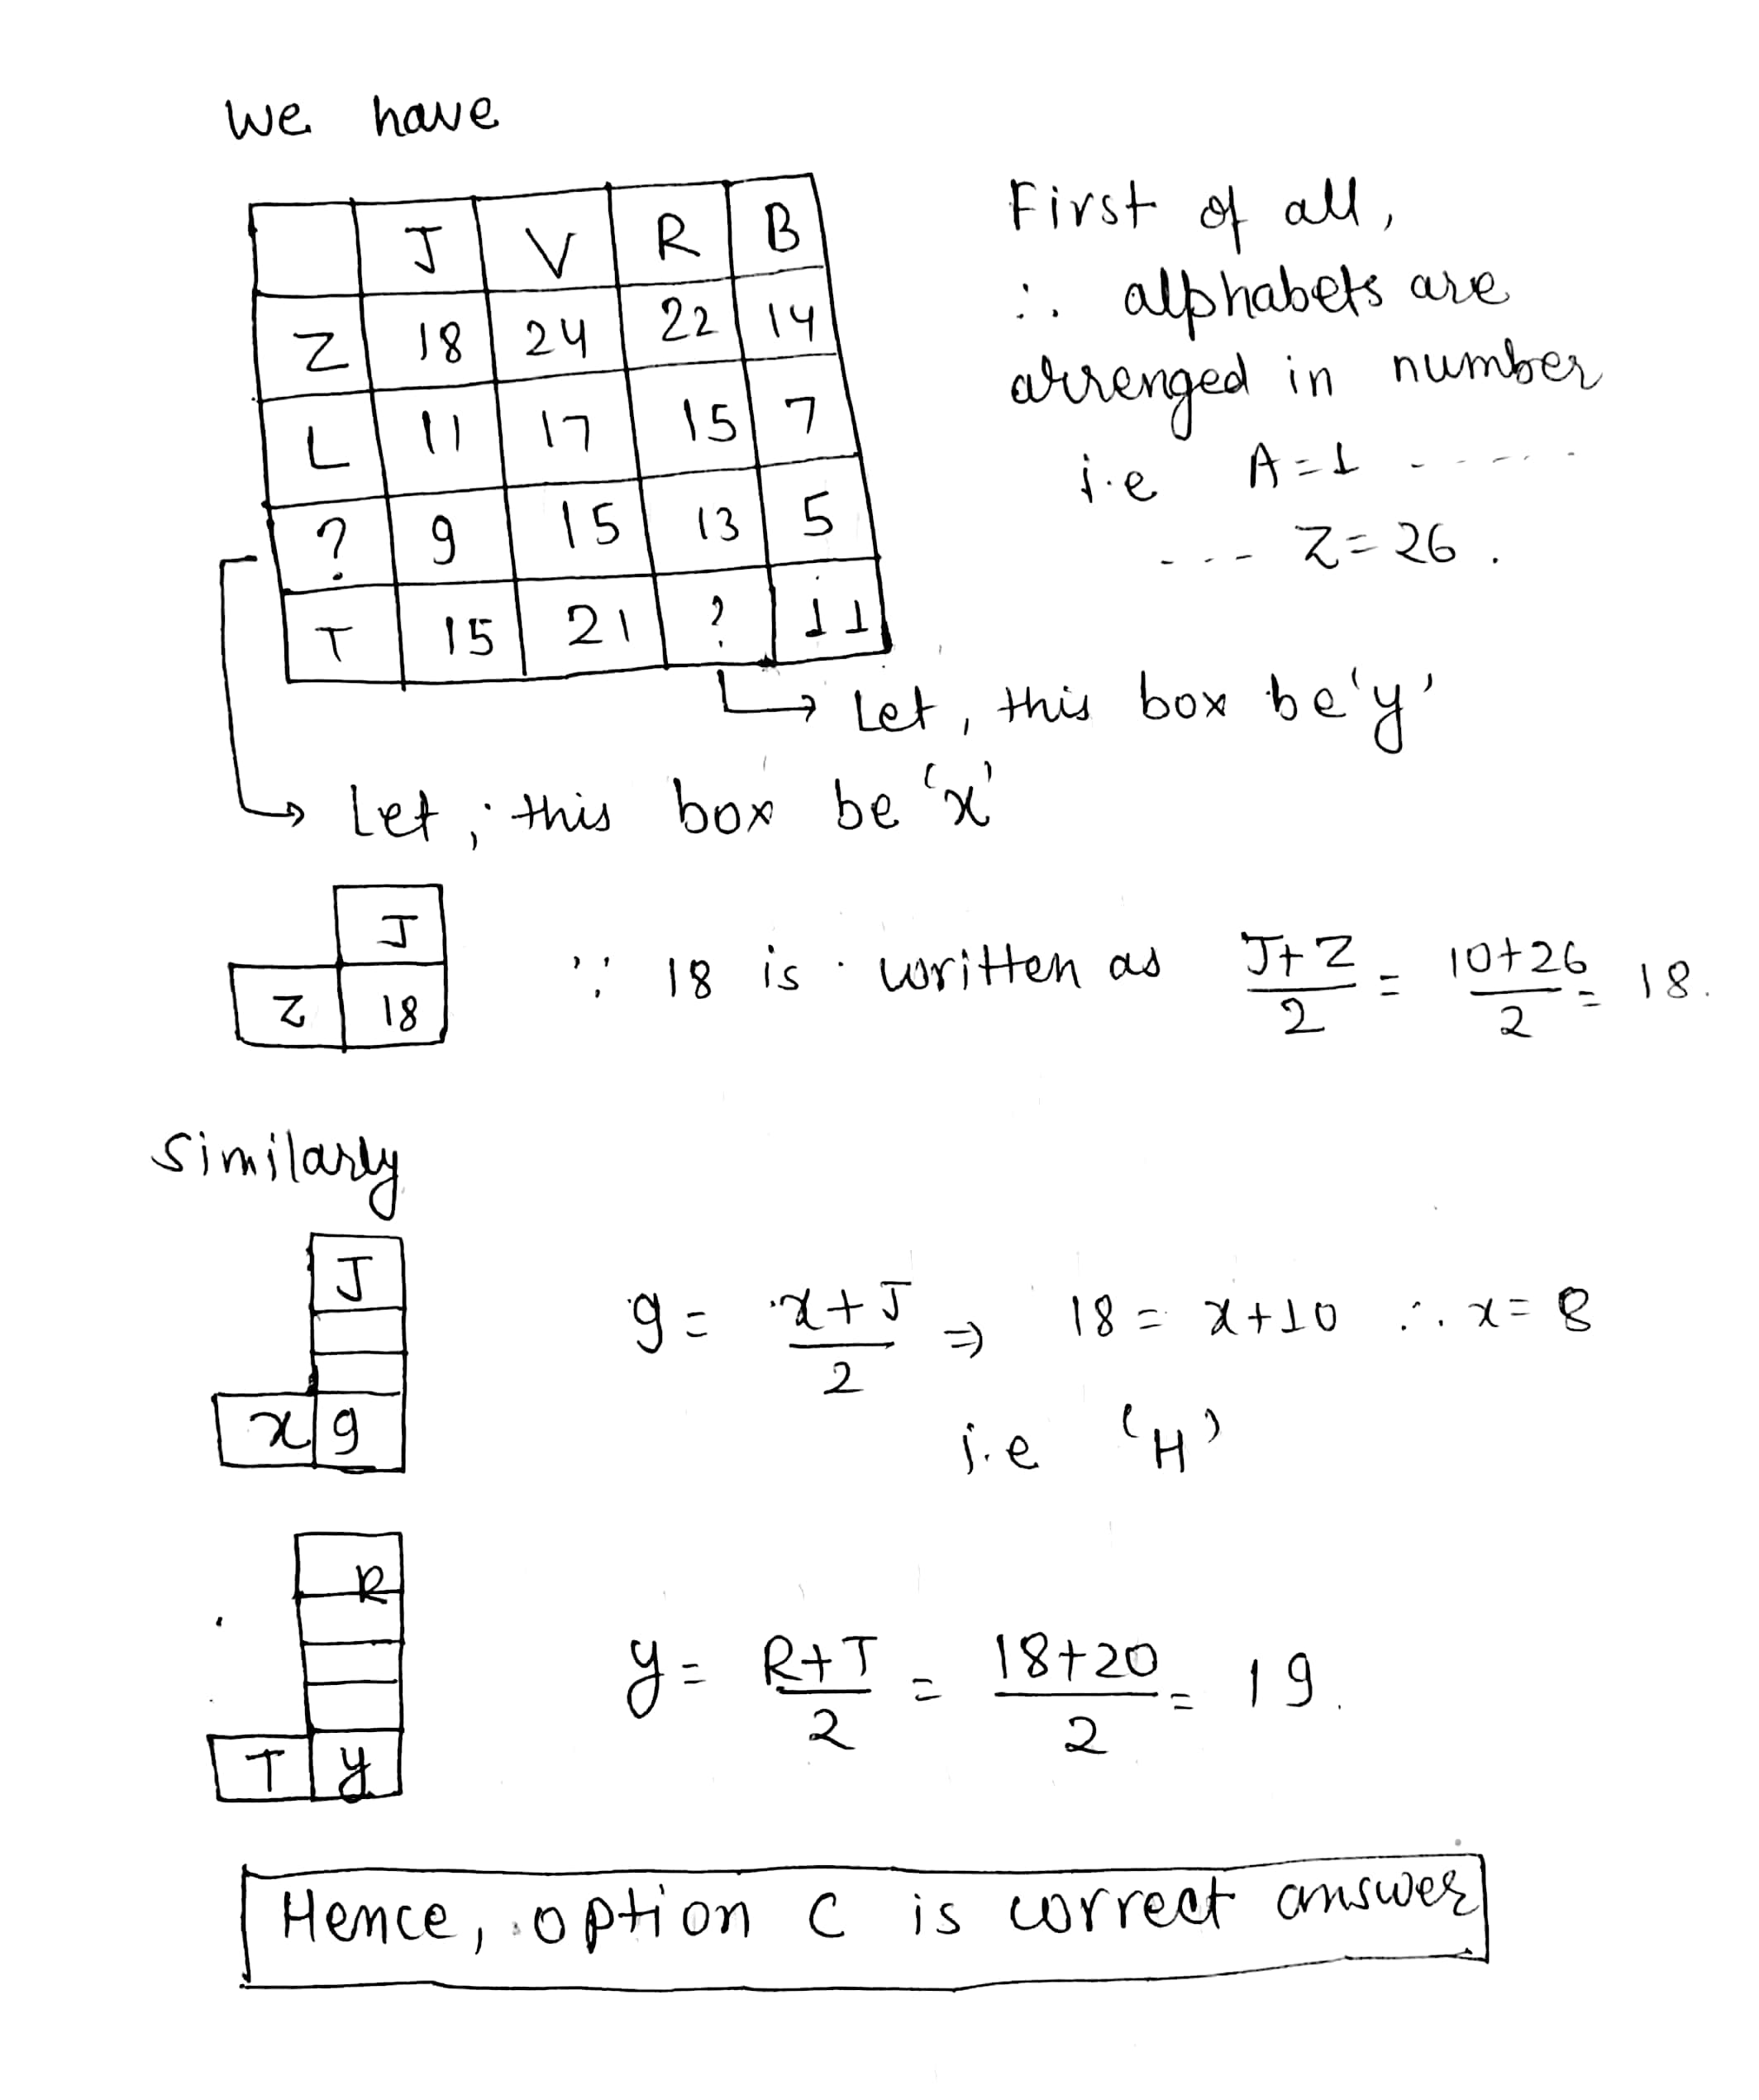 We have
J V R B
Z 18 24 22 14
L 11 17 15 7
? 9 15 13 5
T 15 21 ? 11
First of all,
∴ alphabets are
arrenged in number
i.e A=1 ------
--- Z=26.
Let, this box be 'y'
Let, this box be 'x'
J
Z 18
∵ 18 is written as J+Z/2 = 10+26/2 = 18.
Similarly
J
x 9
9 = x+J/2 ⇒ 18 = x+10 ∴ x=8
i.e 'H'
R
T y
y = R+T/2 = 18+20/2 = 19.
Hence, option C is correct answer